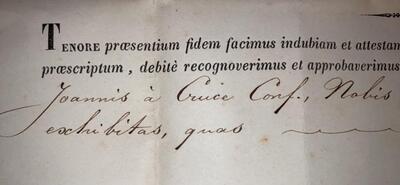 TENORE præsentium fidem facimus indubiam et attestam
præscriptum, debitè recognoverimus et approbaverimus
Joannis à Cruce Conf., Nobis
exhibitas, quas